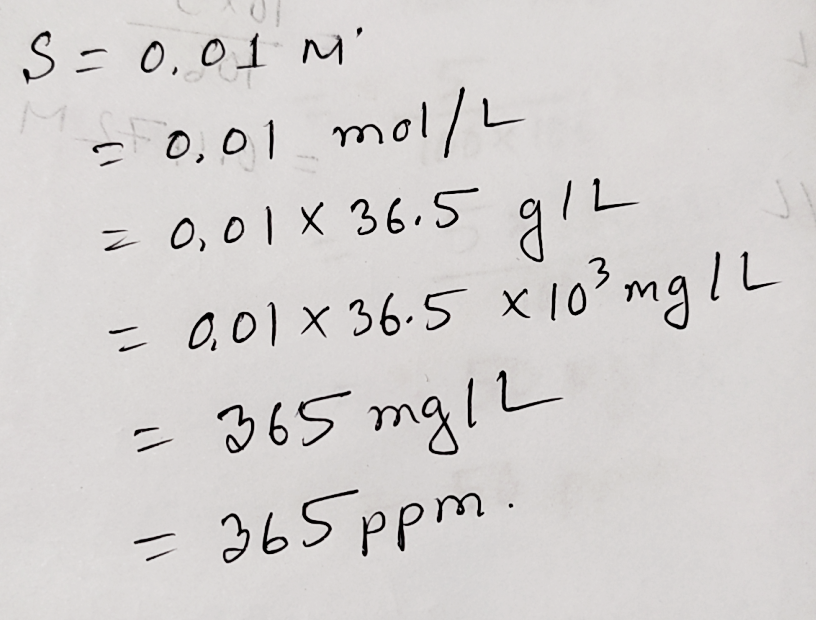 S = 0.01 M
= 0.01 mol/L
= 0.01 × 36.5 g/L
= 0.01 × 36.5 × 10³ mg/L
= 365 mg/L
= 365 ppm.